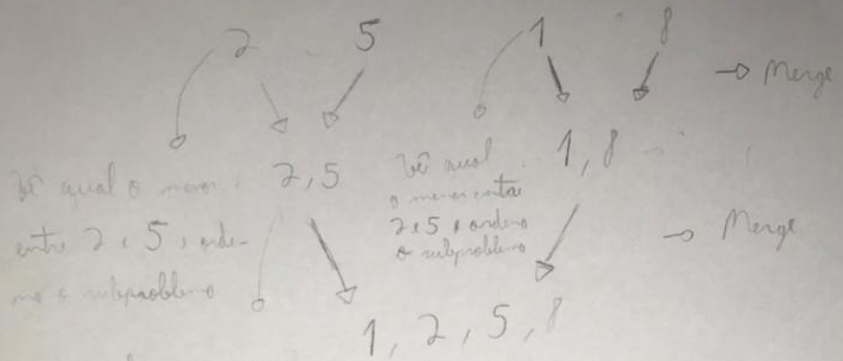 2 5 1 8 → Merge
2,5 1,8
Vê qual o menor
entre 2 e 5, orde-
no o subproblema
Vê qual
o menor entre
2 e 5, ordeno
o subproblema
→ Merge
1, 2, 5, 8